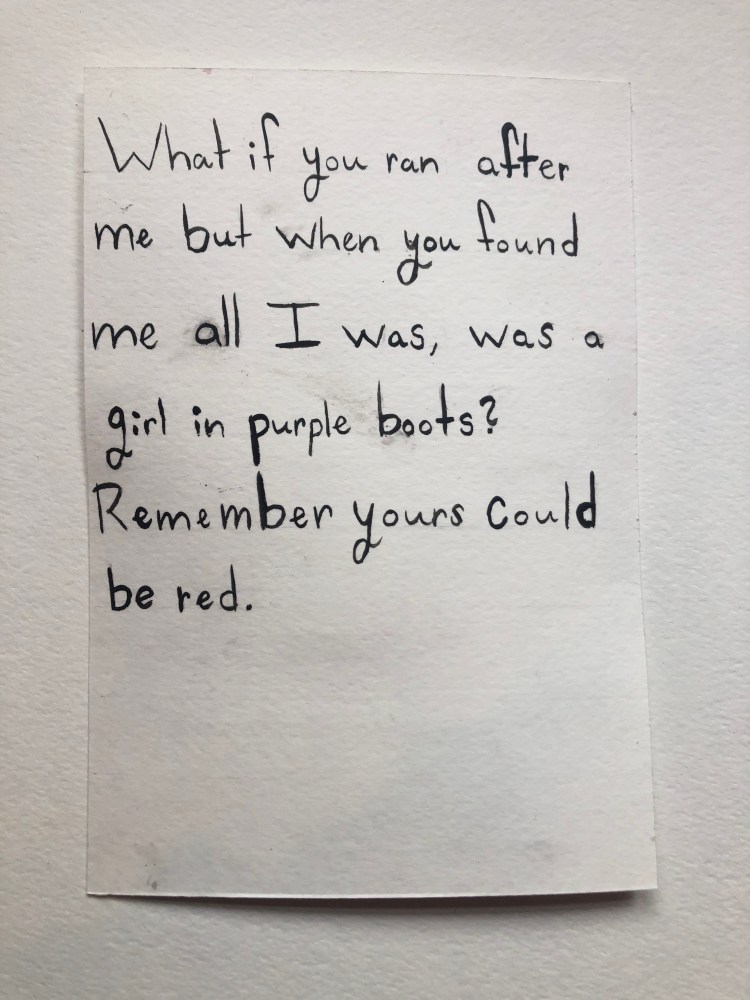 What if you ran after
me but when you found
me all I was, was a
girl in purple boots?
Remember yours could
be red.